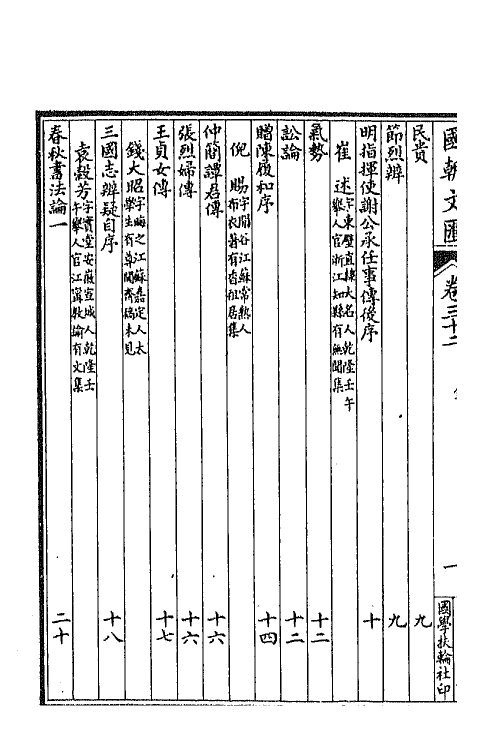 國朝文匯 卷三十二 一 國學扶輪社印
民貴 九
節烈辨 九
明指揮使謝公承任事傳後序 十
崔述 字東壁直隸大名人乾隆壬午
舉人官浙江知縣有無聞集
氣勢 十二
訟論 十二
贈陳履和序 十四
倪賜 字閬谷江蘇常熟人
布衣著有香祖居集
仲簡譚君傳 十六
張烈婦傳 十六
王貞女傳 十七
錢大昭 字晦之江蘇嘉定人太
學生有尊聞齋稿未見
三國志辨疑自序 十八
袁穀芳 字實堂安徽宣城人乾隆壬
午舉人官江寧教諭有文集
春秋書法論一 二十